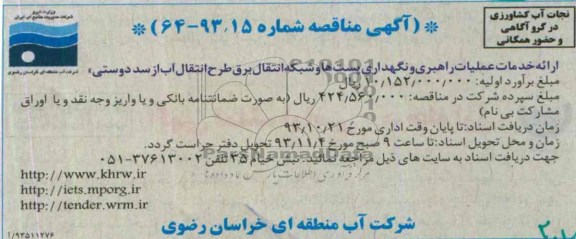 نجات آب کشاورزی
در گرو آگاهی
و حضور همگانی
(آگهی مناقصه شماره ۱۵،۹۳-۶۴)
وزارت نیرو
شرکت مدیریت منابع آب ایران
شرکت آب منطقه ای خراسان رضوی
ارائه خدمات عملیات راهبری و نگهداری پست ها و شبکه انتقال برق طرح انتقال آب از سد دوستی»
مبلغ برآورد اولیه: ۱۰،۱۵۲،۰۰۰،۰۰۰ ریال
مبلغ سپرده شرکت در مناقصه: ۴۲۴،۵۶۰،۰۰۰ ریال (به صورت ضمانتنامه بانکی و یا واریز وجه نقد و یا اوراق
مشارکت بی نام)
زمان دریافت اسناد: تا پایان وقت اداری مورخ ۹۳،۱۰،۲۱
زمان و محل تحویل اسناد: تا ساعت ۹ صبح مورخ ۹۳،۱۱،۴ تحویل دفتر حراست گردد.
جهت دریافت اسناد به سایت های ذیل مراجعه نمائید: نبش خیام ۳۵ تلفن ۳۷۶۱۳۰۰۲-۰۵۱
http://www.khrw.ir
http://iets.mporg.ir
http://tender.wrm.ir
شرکت آب منطقه ای خراسان رضوی
آ/۹۳۵۱۱۲۷۶